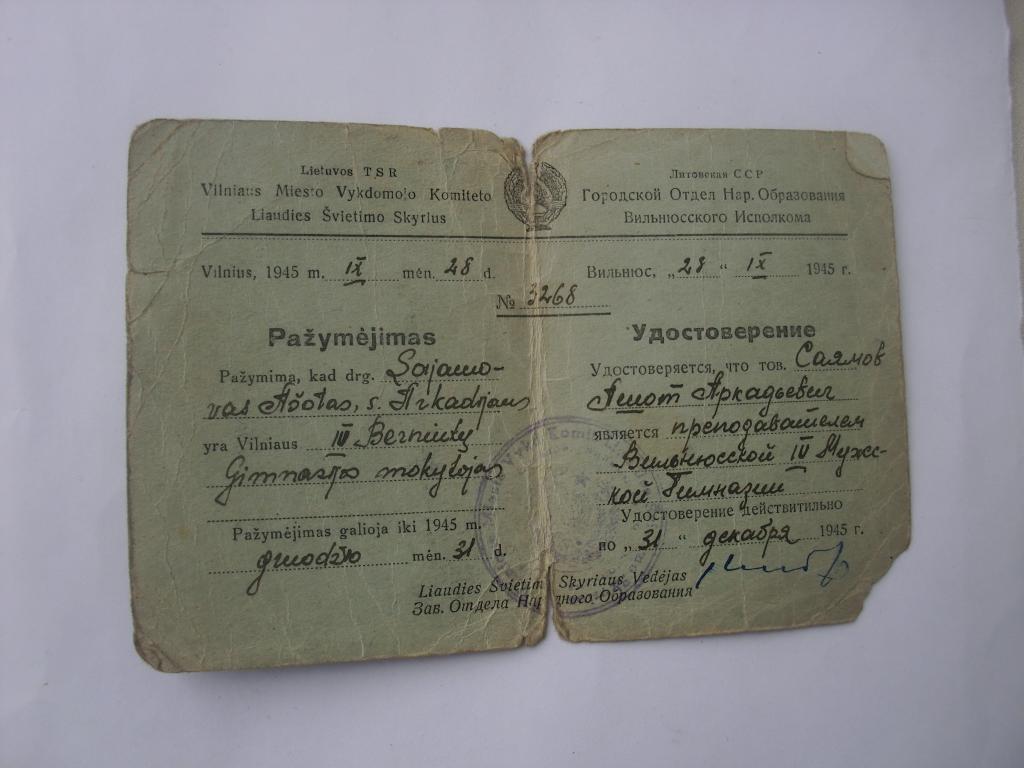 Lietuvos TSR
Vilniaus Miesto Vykdomojo Komiteto
Liaudies Švietimo Skyrius
Vilnius, 1945 m. IX mėn. 28 d.
№ 3268
Pažymėjimas
Pažymima, kad drg. Sajamo-
vas Ašotas, s. Arkadijaus
yra Vilniaus IV Berniukų
Gimnazijos mokytojas
Pažymėjimas galioja iki 1945 m.
gruodžio mėn. 31 d.
Литовская ССР
Городской Отдел Нар. Образования
Вильнюсского Исполкома
Вильнюс, „28“ IX 1945 г.
Удостоверение
Удостоверяется, что тов. Саямов
Ашот Аркадьевич
является преподавателем
Вильнюсской IV Мужс-
кой Гимназии
Удостоверение действительно
по „31“ декабря 1945 г.
Liaudies Švietim Skyriaus Vedėjas
Зав. Отдела На дного Образования